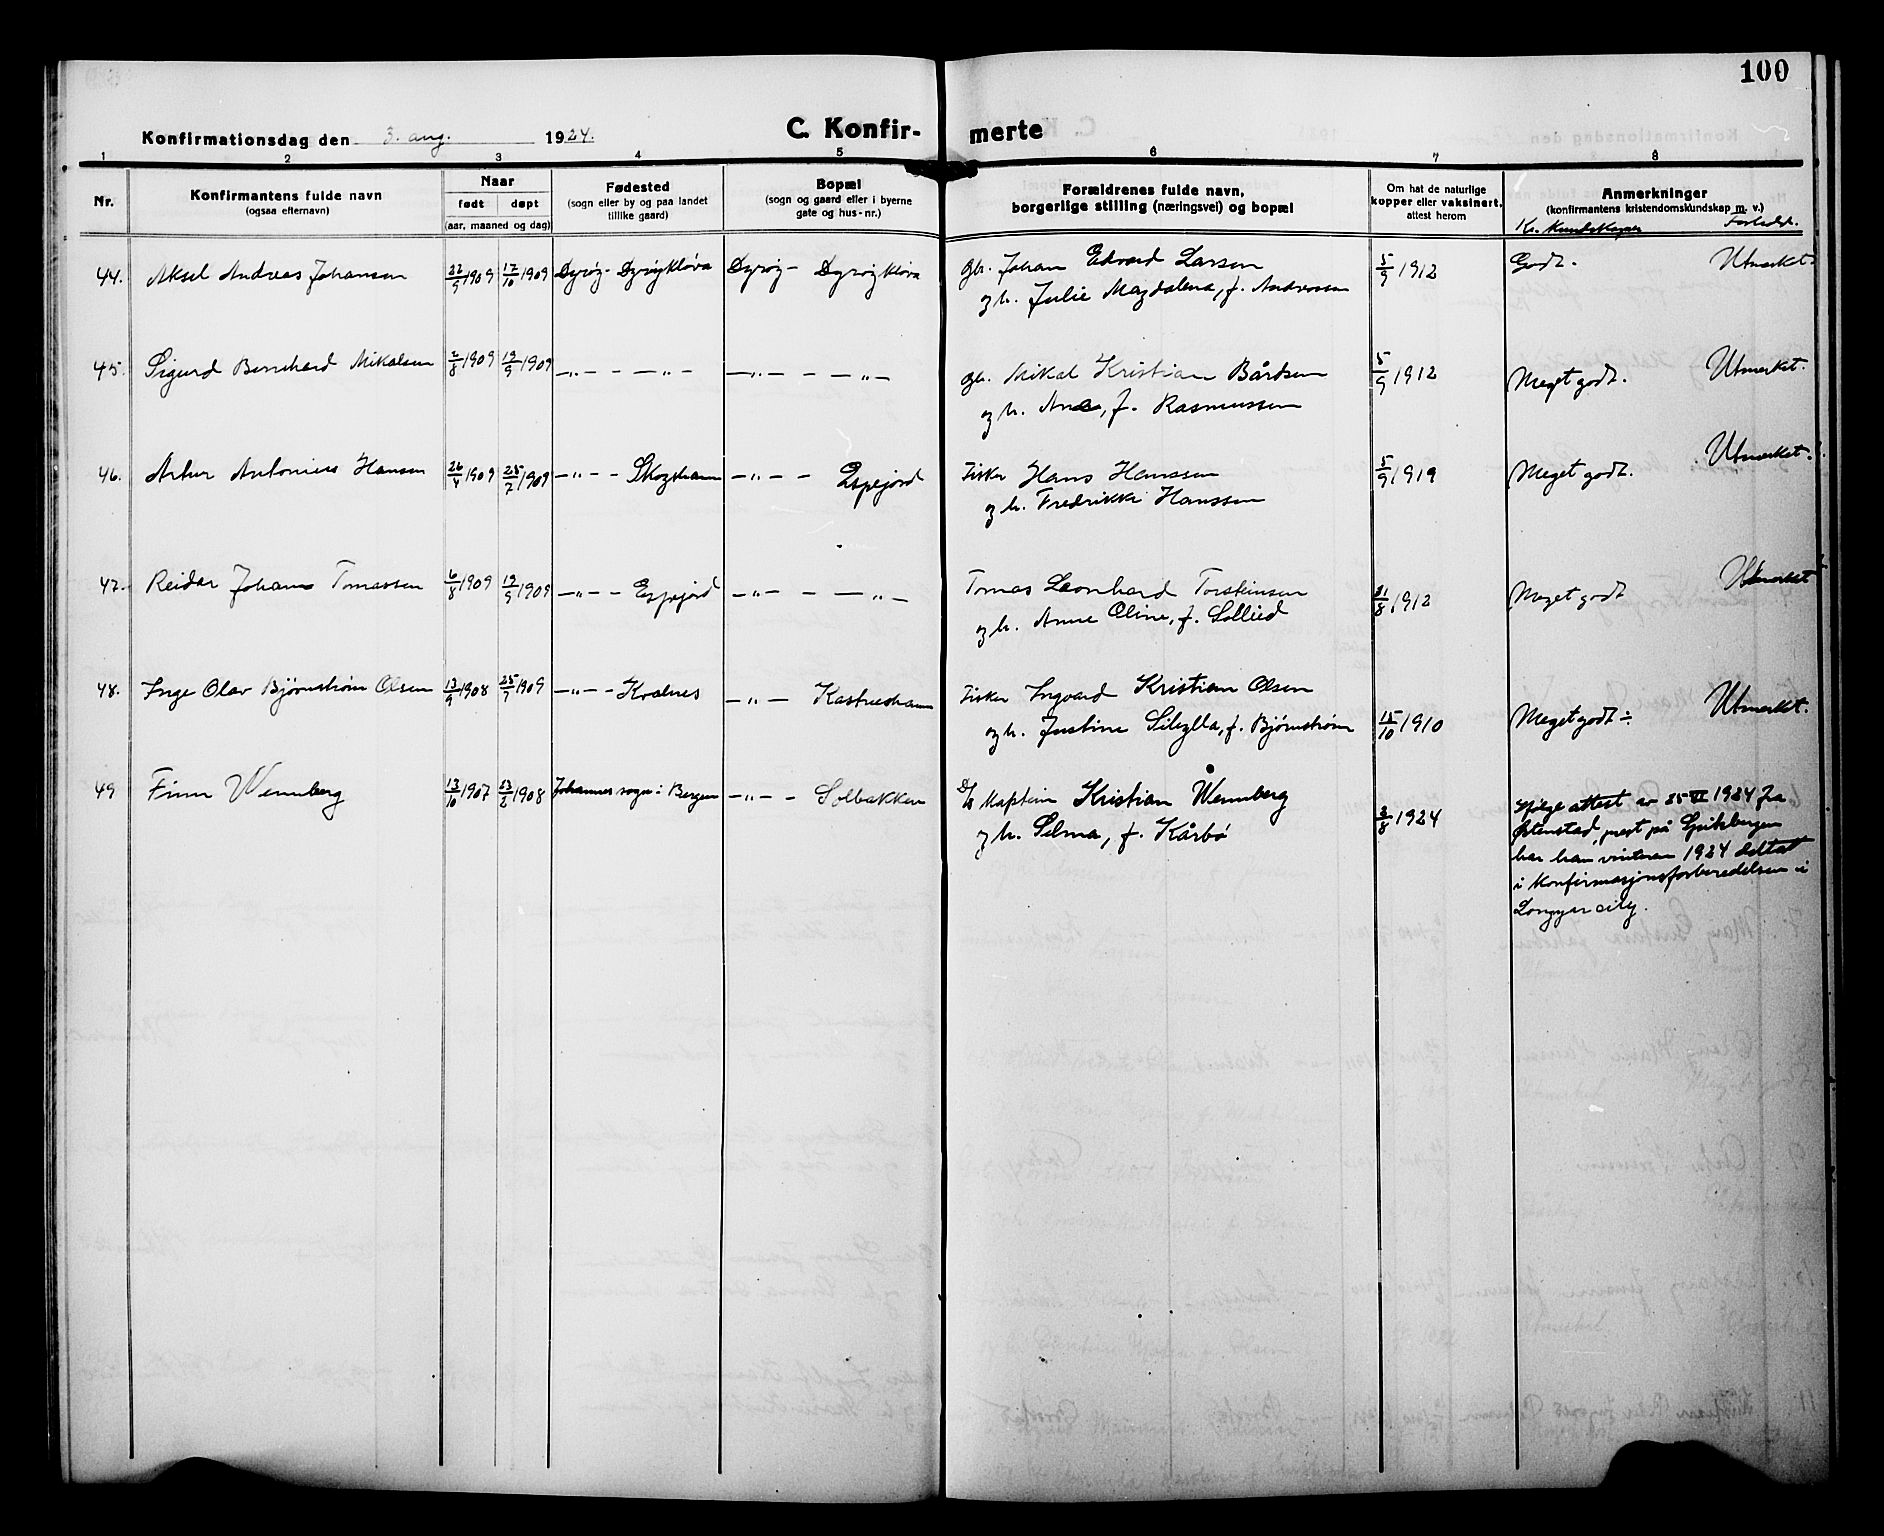 100
Konfirmationsdag den 3. aug. 1924.
C. Konfir-merte
1 2 3 4 5 6 7 8
Nr.
Konfirmantens fulde navn
(ogsaa efternavn)
Naar
født døpt
(aar, maaned og dag)
Fødested
(sogn eller by og paa landet
tillike gaard)
Bopæl
(sogn og gaard eller i byerne
gate og hus-nr.)
Forældrenes fulde navn,
borgerlige stilling (næringsvei) og bopæl
Om hat de naturlige
kopper eller vaksinert,
attest herom
Anmerkninger
(konfirmantens kristendomskundskap m. v.)
Kr. Kundskaper Forholdt.
44. Aksel Andreas Johansen 22/9 1909 17/10 1909 Dyrøy - Dyrøykløva Dyrøy - Dyrøykløva Gb. Johan Edvard Larsen 5/9 1912 Godt. Utmerket.
og h. Julie Magdalena, f. Andressen
45. Sigurd Bernhard Mikalsen 2/8 1909 19/9 1909 — " — — " — — " — — " — Gb. Mikal Kristian Bårdsen 5/9 1912 Meget godt. Utmerket.
og h. Ane, f. Rasmussen
46. Artur Antonius Hansen 26/4 1909 25/7 1909 — " — Skoghamn — " — Espejord Fisker Hans Hanssen 5/9 1919 Meget godt. Utmerket.
og h. Fredrikke Hanssen
47. Reidar Johans Tomassen 6/8 1909 19/9 1909 — " — Espejord — " — — " — Tomas Leonhard Torsteinsen 31/8 1912 Meget godt Utmerket
og h. Anne Oline, f. Sollied
48. Inge Olav Bjørnstrøm Olsen 13/9 1908 25/7 1909 — " — Kvalnes — " — Kastneshamn Fisker Ingvard Kristian Olsen 15/10 1910 Meget godt ÷ Utmerket.
og h. Justine Sibylla, f. Bjørnstrøm
49 Finn Wennberg 13/10 1907 23/2 1908 Johannes sogn i Bergen — " — Solbakken D/S Kaptein Kristian Wennberg 3/8 1924
og h. Selma, f. Kårbø
Ifølge attest av 25-VI 1924 fra
Østenstad, prest på Spitsbergen
har han vinteren 1924 deltat
i konfirmasjonsforberedelsen i
Longyear city.